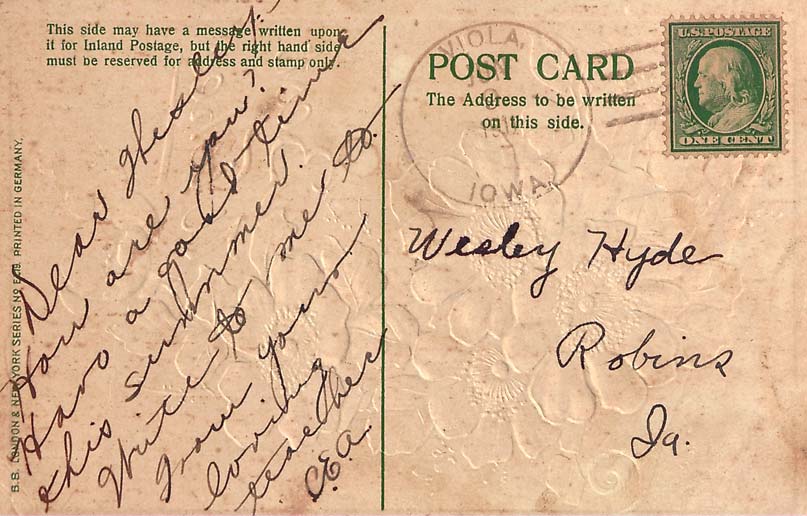 This side may have a message written upon
it for Inland Postage, but the right hand side
must be reserved for address and stamp only.
Dear Wesley:
How are you?
Have a good time
this summer.
Write to me to.
From your
loving
teacher
C.E.A.
B.B. LONDON & NEW YORK SERIES No E PRINTED IN GERMANY.
VIOLA,
IOWA
POST CARD
The Address to be written
on this side.
U.S. POSTAGE
ONE CENT
Wesley Hyde
Robins
Ia.